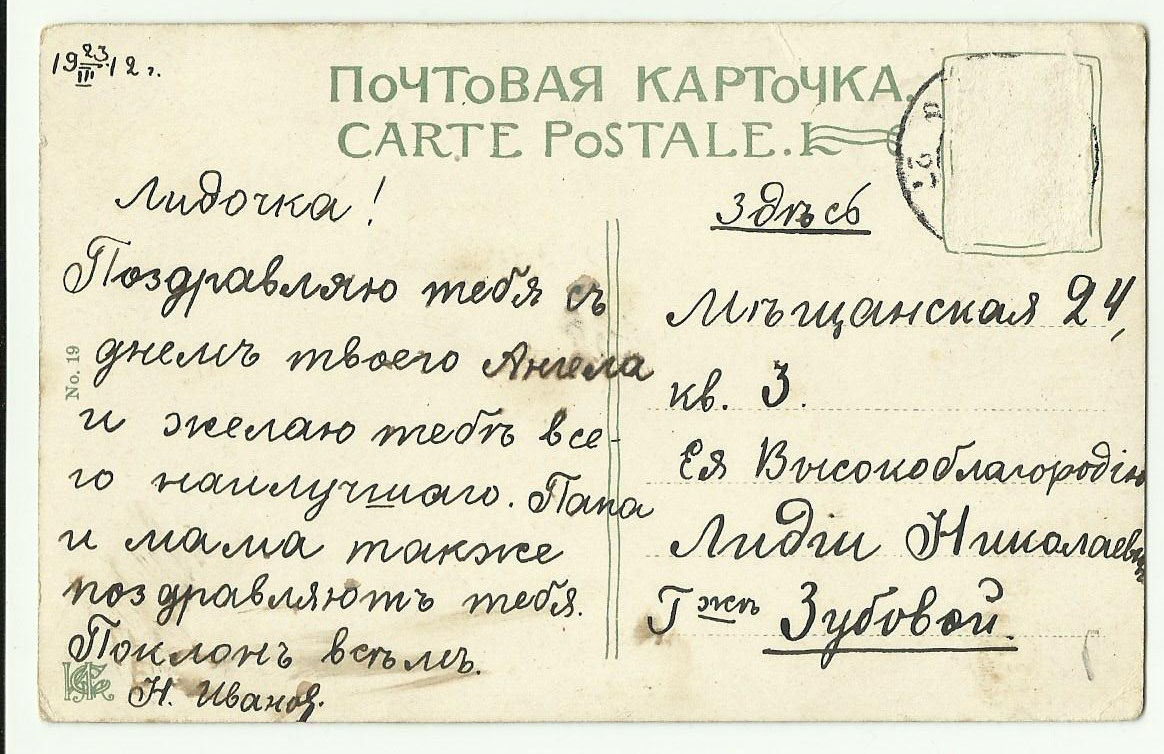 19 23/III 12 г.
ПОЧТОВАЯ КАРТОЧКА.
CARTE POSTALE.
Лидочка!
Поздравляю тебя съ
днемъ твоего Ангела
и желаю тебѣ все-
го наилучшаго. Папа
и мама также
поздравляютъ тебя.
Поклонъ всѣмъ.
Н. Иванов.
No. 19
Здѣсь
Мѣщанская 24,
кв. 3.
Ея Высокоблагородію
Лидіи Николаевнѣ
Гжѣ Зубовой.